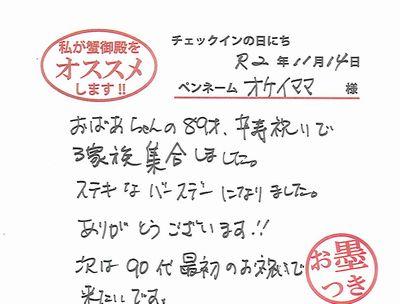 私が蟹御殿を
オススメ
します!!
チェックインの日にち
R2年11月14日
ペンネーム オケイママ 様
おばあちゃんの89才、卒寿祝いで
3家族集合しました。
ステキなバースデーになりました。
ありがとうございます.!!
次は90代最初のお祝いで
来たいです。
お墨
つき